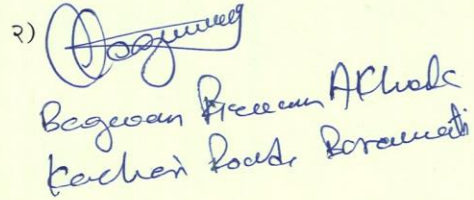 २)
Bagwan AKhada
Kacheri Road, Baramati